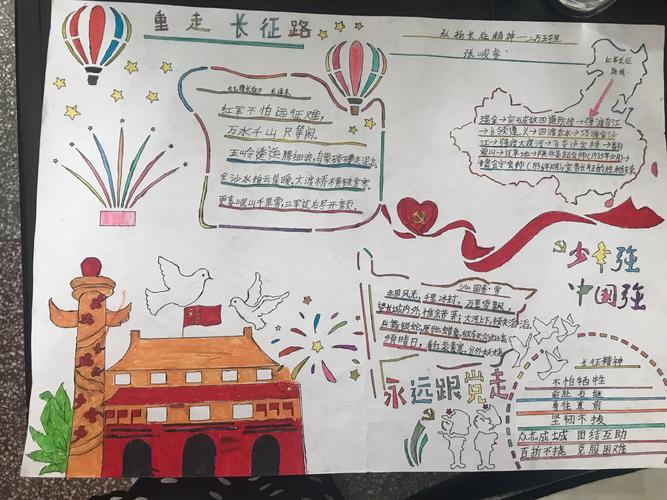 重走 长征路
弘扬长征精神——二万五千里
红军长征
路线
《七律长征》 毛泽东
红军不怕远征难,
万水千山只等闲。
五岭逶迤腾细浪,乌蒙磅礴走泥丸。
金沙水拍云崖暖,大渡桥横铁索寒。
更喜岷山千里雪,三军过后尽开颜。
瑞金→突破敌四道防线→强渡乌江
→占领遵义→四渡赤水→巧渡金沙
江→强渡大渡河→飞夺泸定桥→翻
雪山→过草地→陕北吴起会师(1935年10月)→
少年强
中国强
沁园春·雪
北国风光,千里冰封,万里雪飘
望长城内外,惟余莽莽;大河上下,顿失滔滔
须晴日,看红装素裹,分外妖娆
永远跟党走
长征精神
不怕牺牲
前赴后继
勇往直前
坚韧不拔
众志成城 团结互助
百折不挠 克服困难